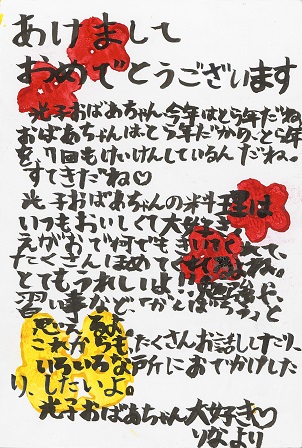 あけまして
おめでとうございます
光子おばあちゃん今年はとら年だね。
おばあちゃんはとら年だから、とら年
を7回もけいけんしているんだね。
すてきだね♡
光子おばあちゃんの料理は
いつもおいしくて大好き
えがおで何でもきいて
たくさんほめて
とてもうれしいよ
習い事など、がんばろうと
思えるよ。
これからもたくさんお話ししたり、
いろいろな所におでかけした
り、したいよ。
光子おばあちゃん大好き♡
りなより